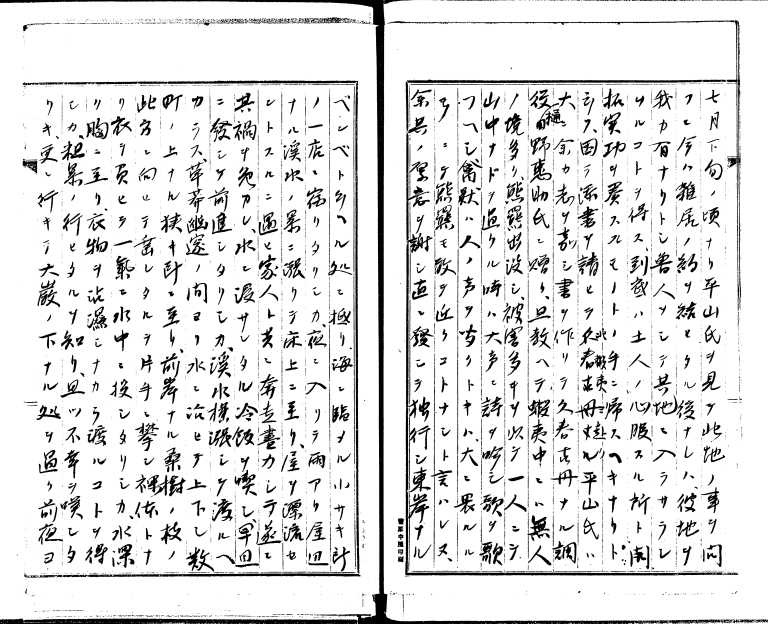 七月下旬ノ頃ナリ平山氏ヲ見ヲ此地ノ事ヲ問
フニ今ハ雑居ノ約ヲ結ヒタル後ナレハ彼地ヲ
我カ有ナリトシ魯人ヲシテ其地ニ入ラサラシ
ムルコトヲ得ス到底ハ土人ノ心服スル所ト開
拓実功ヲ奏スルモノトノ手ニ帰スヘキナリト
シス因テ添書ヲ請ヒヲ久春古丹ニル平山氏ハ
大ニ余カ志ヲ嘉シ書ヲ作リテ久春古丹ナル調
役樋野恵助氏ニ贈リ且教ヘテ蝦夷中ニハ無人
ノ境多ク熊羆出没シ被害多キヲ以テ一人ニテ
山中ナドヲ過クル時ハ大声ニ詩ヲ吟シ歌ヲ歌
フヘシ禽獣ハ人ノ声ヲ聞クトキハ大ニ畏ルル
モノニテ熊羆モ敢テ近クコトナシト言ハレヌ
余其ノ厚意ヲ謝シ直ニ発シテ独行シ東岸ナル
ベンベトヲイヘル処ニ極リ海ニ臨メル小サキ
ノ一店ニ宿リタリシカ夜ニ入リテ雨アリ屋
ナル渓水ノ暴ニ漲リテ床上ニ至リ屋ヲ漂流セ
ントスルニ遇ヒ家人ト共ニ奔走尽力シテ遂ニ
其禍ヲ免カレ水ニ浸サレタル冷飯ヲ喫シ早
ニ発シテ前進シタリシカ渓水横漲シテ渡ルヘ
カラス草莽幽邃ノ間ヨリ水ニ沿ヒテ上下シ数
町ノ上ナル狭キ所ニ至リ前岸ナル桑樹ノ枝ノ
此方ニ向ヒテ垂レタルヲ片手ニ攀シ裸体トナ
リ衣ヲ負ヒテ一気ニ水中ニ投シタリシカ水深
ク胸ニ至リ衣物ヲ沾濕シナカラ渡ルコトヲ得
シカ粗暴ノ行ヒタルヲ知リ且ツ不幸ヲ嘆シタ
リキ更ニ行キテ大巌ノ下ナル処ヲ過リ前夜ヨ